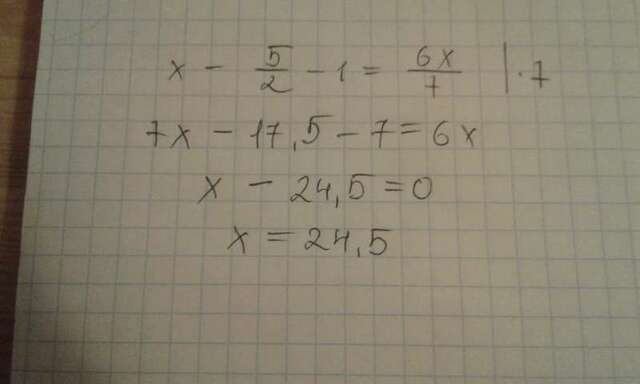 x - 5/2 - 1 = 6x/7 | · 7
7x - 17,5 - 7 = 6x
x - 24,5 = 0
x = 24,5